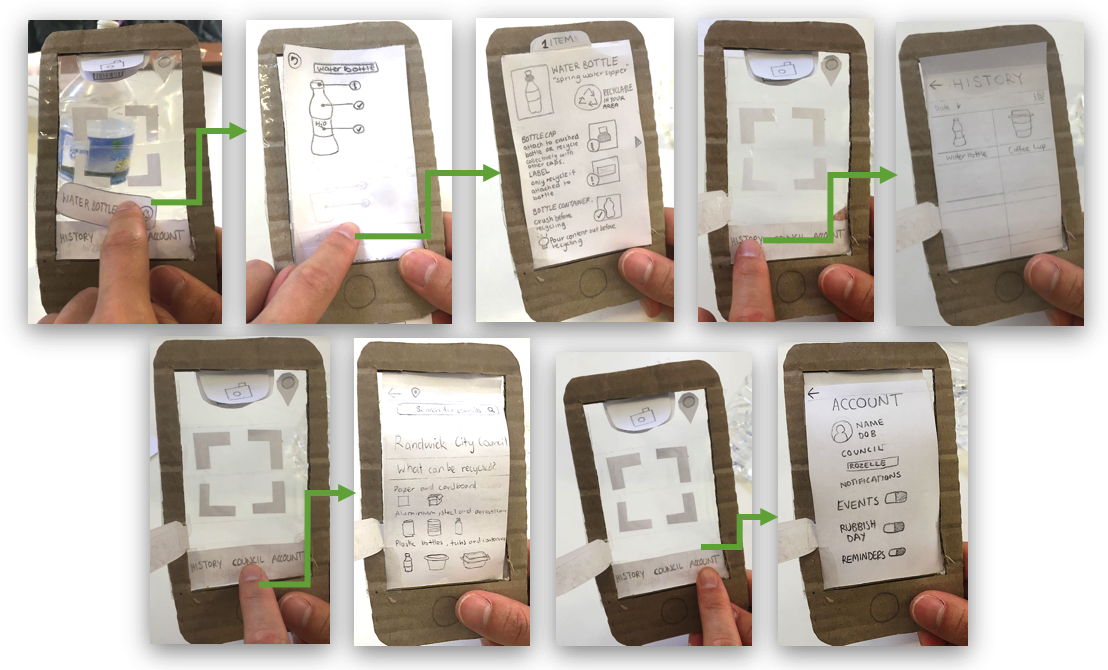 WATER BOTTLE
HISTORY
ACCOUNT
water bottle
H2O
1 ITEM
WATER BOTTLE
"spring water sipper"
RECYCLABLE
IN YOUR
AREA
BOTTLE CAP
attach to crushed
bottle OR recycle
collectively with
other caps.
LABEL
only recycle if
attached to
bottle
BOTTLE CONTAINER:
crush before
recycling
Pour content out before
recycling
HISTORY COUNCIL ACCOUNT
HISTORY
Date
Water Bottle
Coffee Cup
HISTORY COUNCIL ACCOUNT
Search for councils
Randwick City Council
What can be recycled?
Paper and cardboard
Aluminium, steel and
Plastic bottles, tubs and
HISTORY COUNCIL ACCOUNT
ACCOUNT
NAME
DOB
COUNCIL
ROZELLE
NOTIFICATIONS
EVENTS
RUBBISH
DAY
REMINDERS